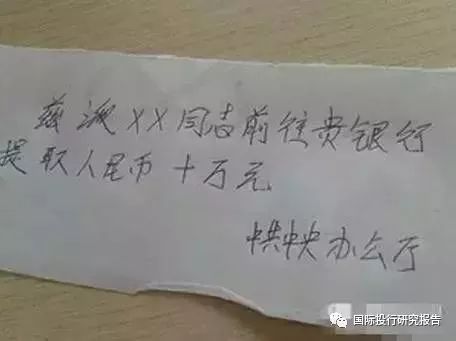 兹派XX同志前往贵银行
提取人民币十万元
中共中央办公厅
国际投行研究报告